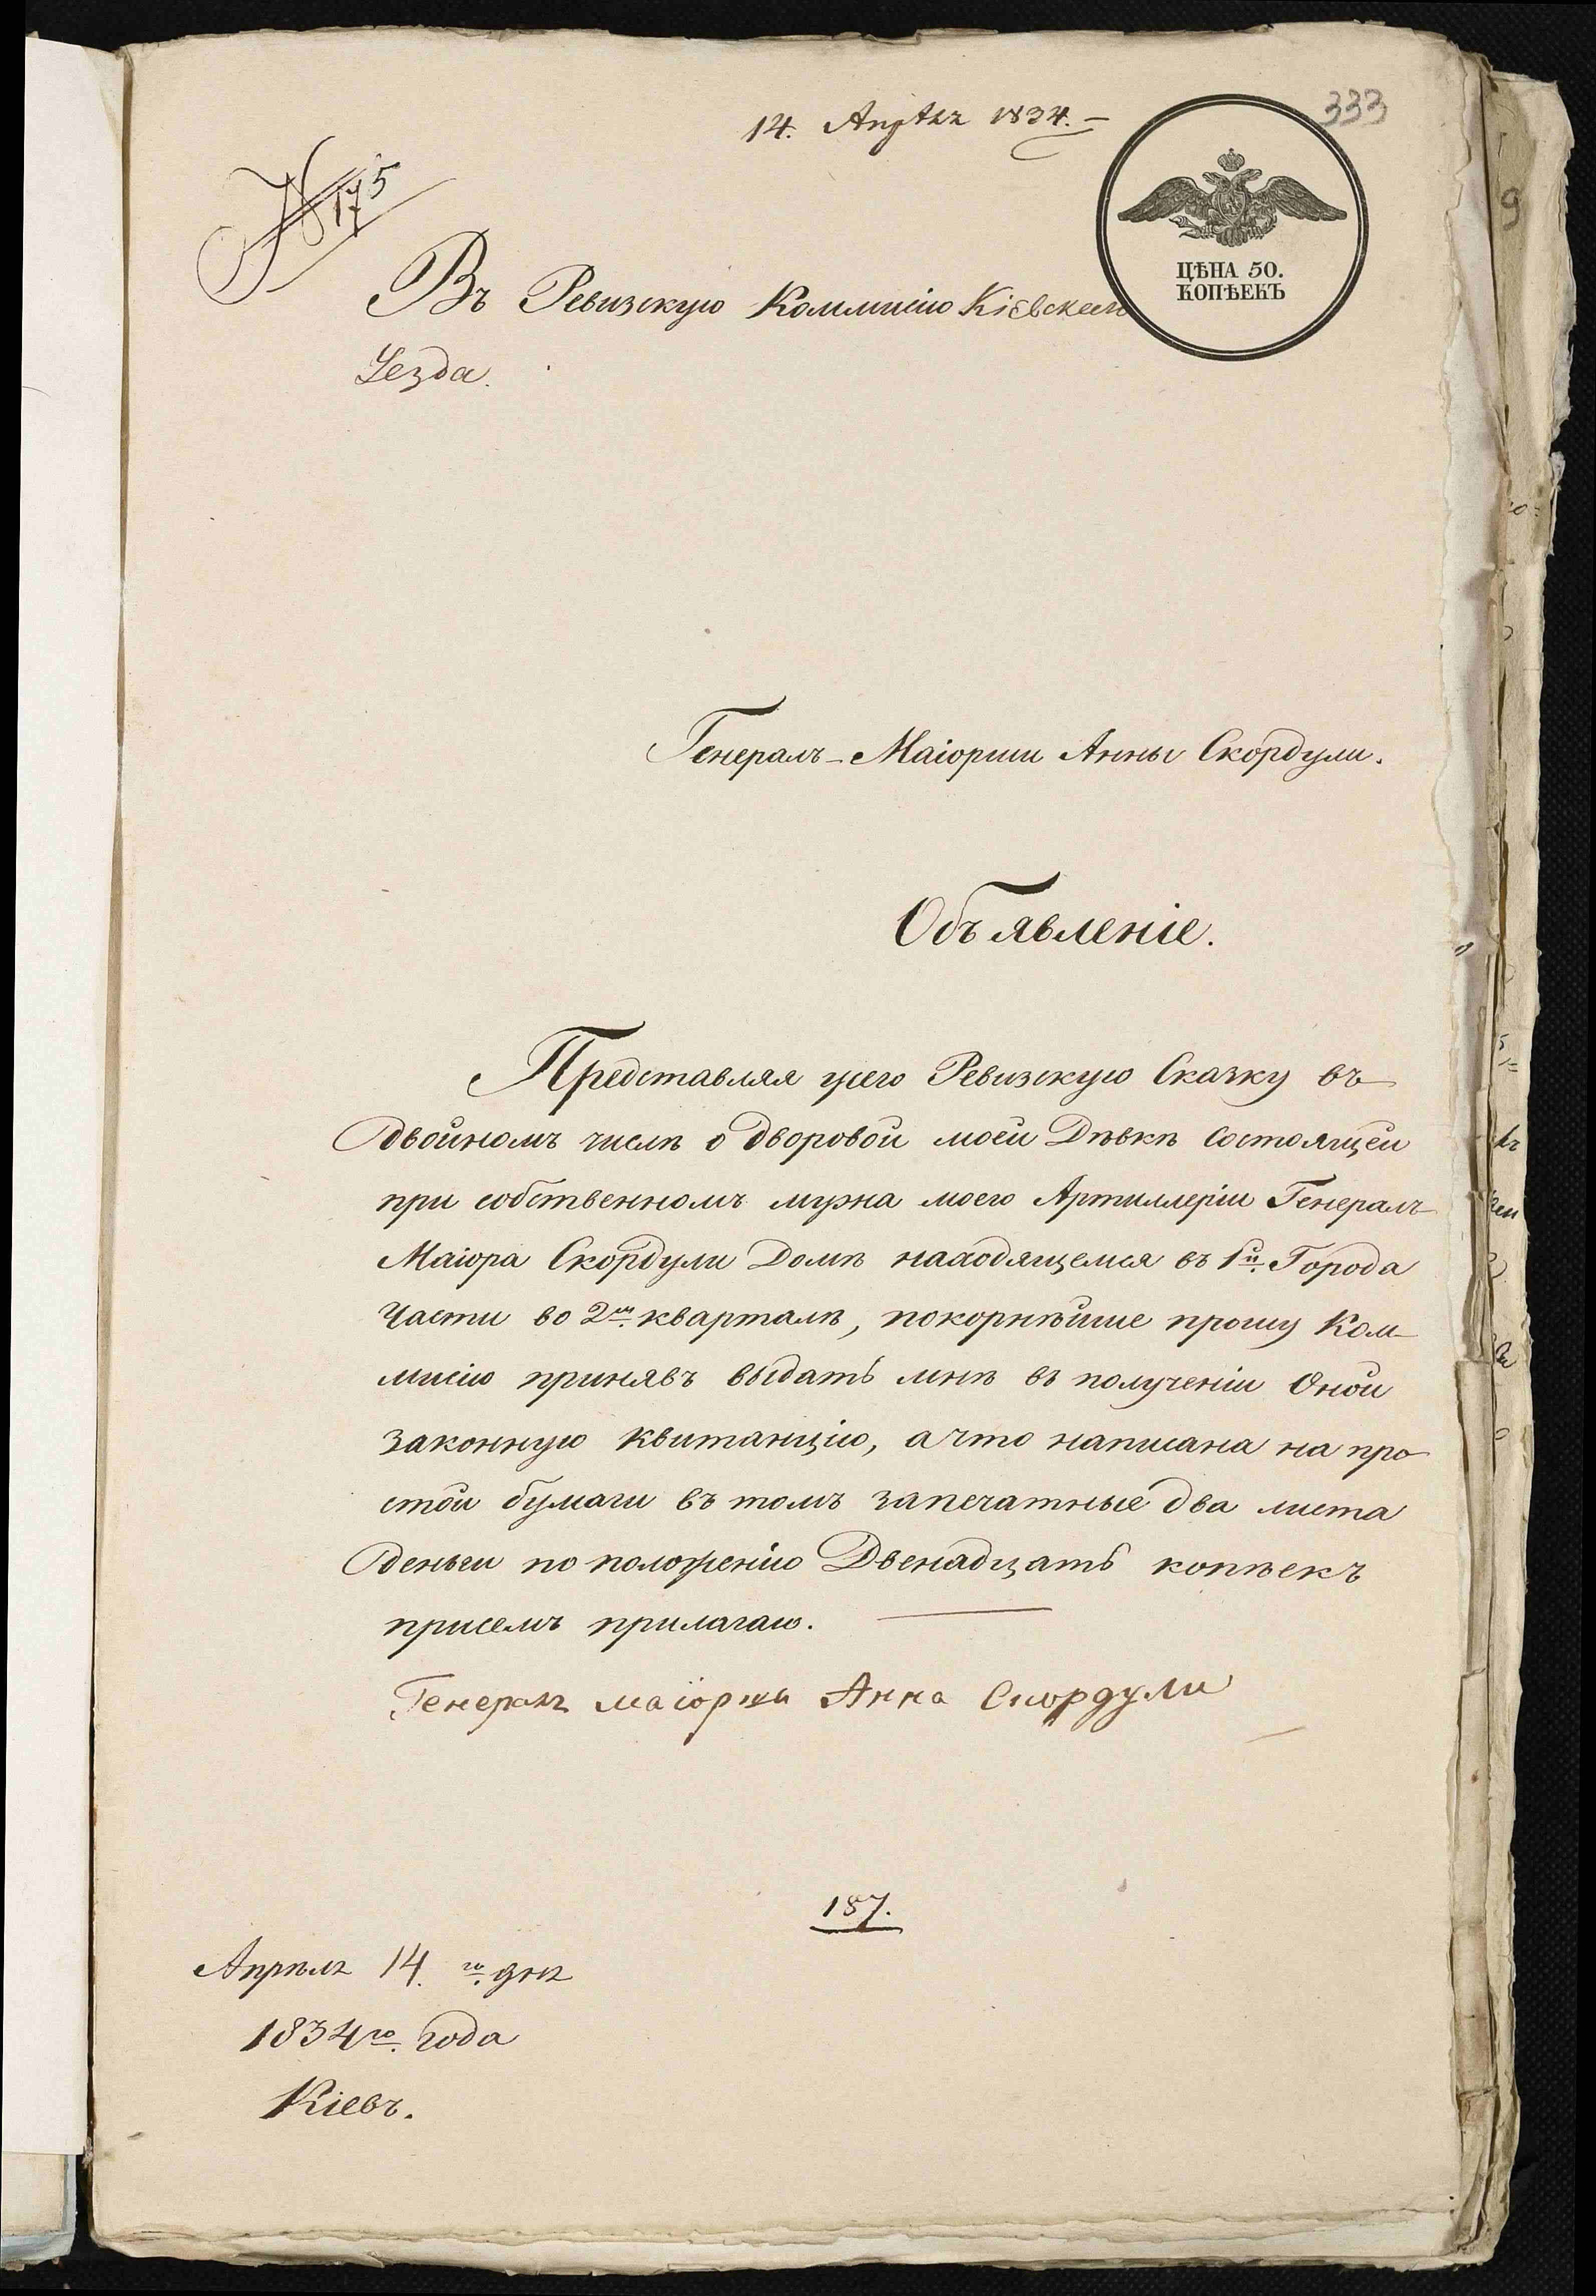 333
14. Апрѣля 1834.
№ 175
ЦѢНА 50.
КОПѢЕКЪ
Въ Ревизскую Коммисiю Кiевскаго
Уезда.
Генералъ-Маiорши Анны Скордули.
Объявленiе.
Представляя усего Ревизскую Сказку въ
двойномъ числѣ о дворовой моей Дѣвкѣ состоящей
при собственномъ мужа моего Артиллерiи Генералъ
Маiора Скордули Домѣ находящемся въ 1й. Города
Части во 2м. кварталѣ, покорнѣйше прошу Ком-
мисiю принявъ выдать мнѣ въ полученiи Оной
законную квитанцiю, а что написана на про-
стой бумаги въ томъ запечатные два листа
деньги по положенiю Двенадцать копѣекъ
присемъ прилагаю.
Генералъ маiорша Анна Скордули
187.
Апрѣля 14. го. дня
1834го. года
Кiевъ.